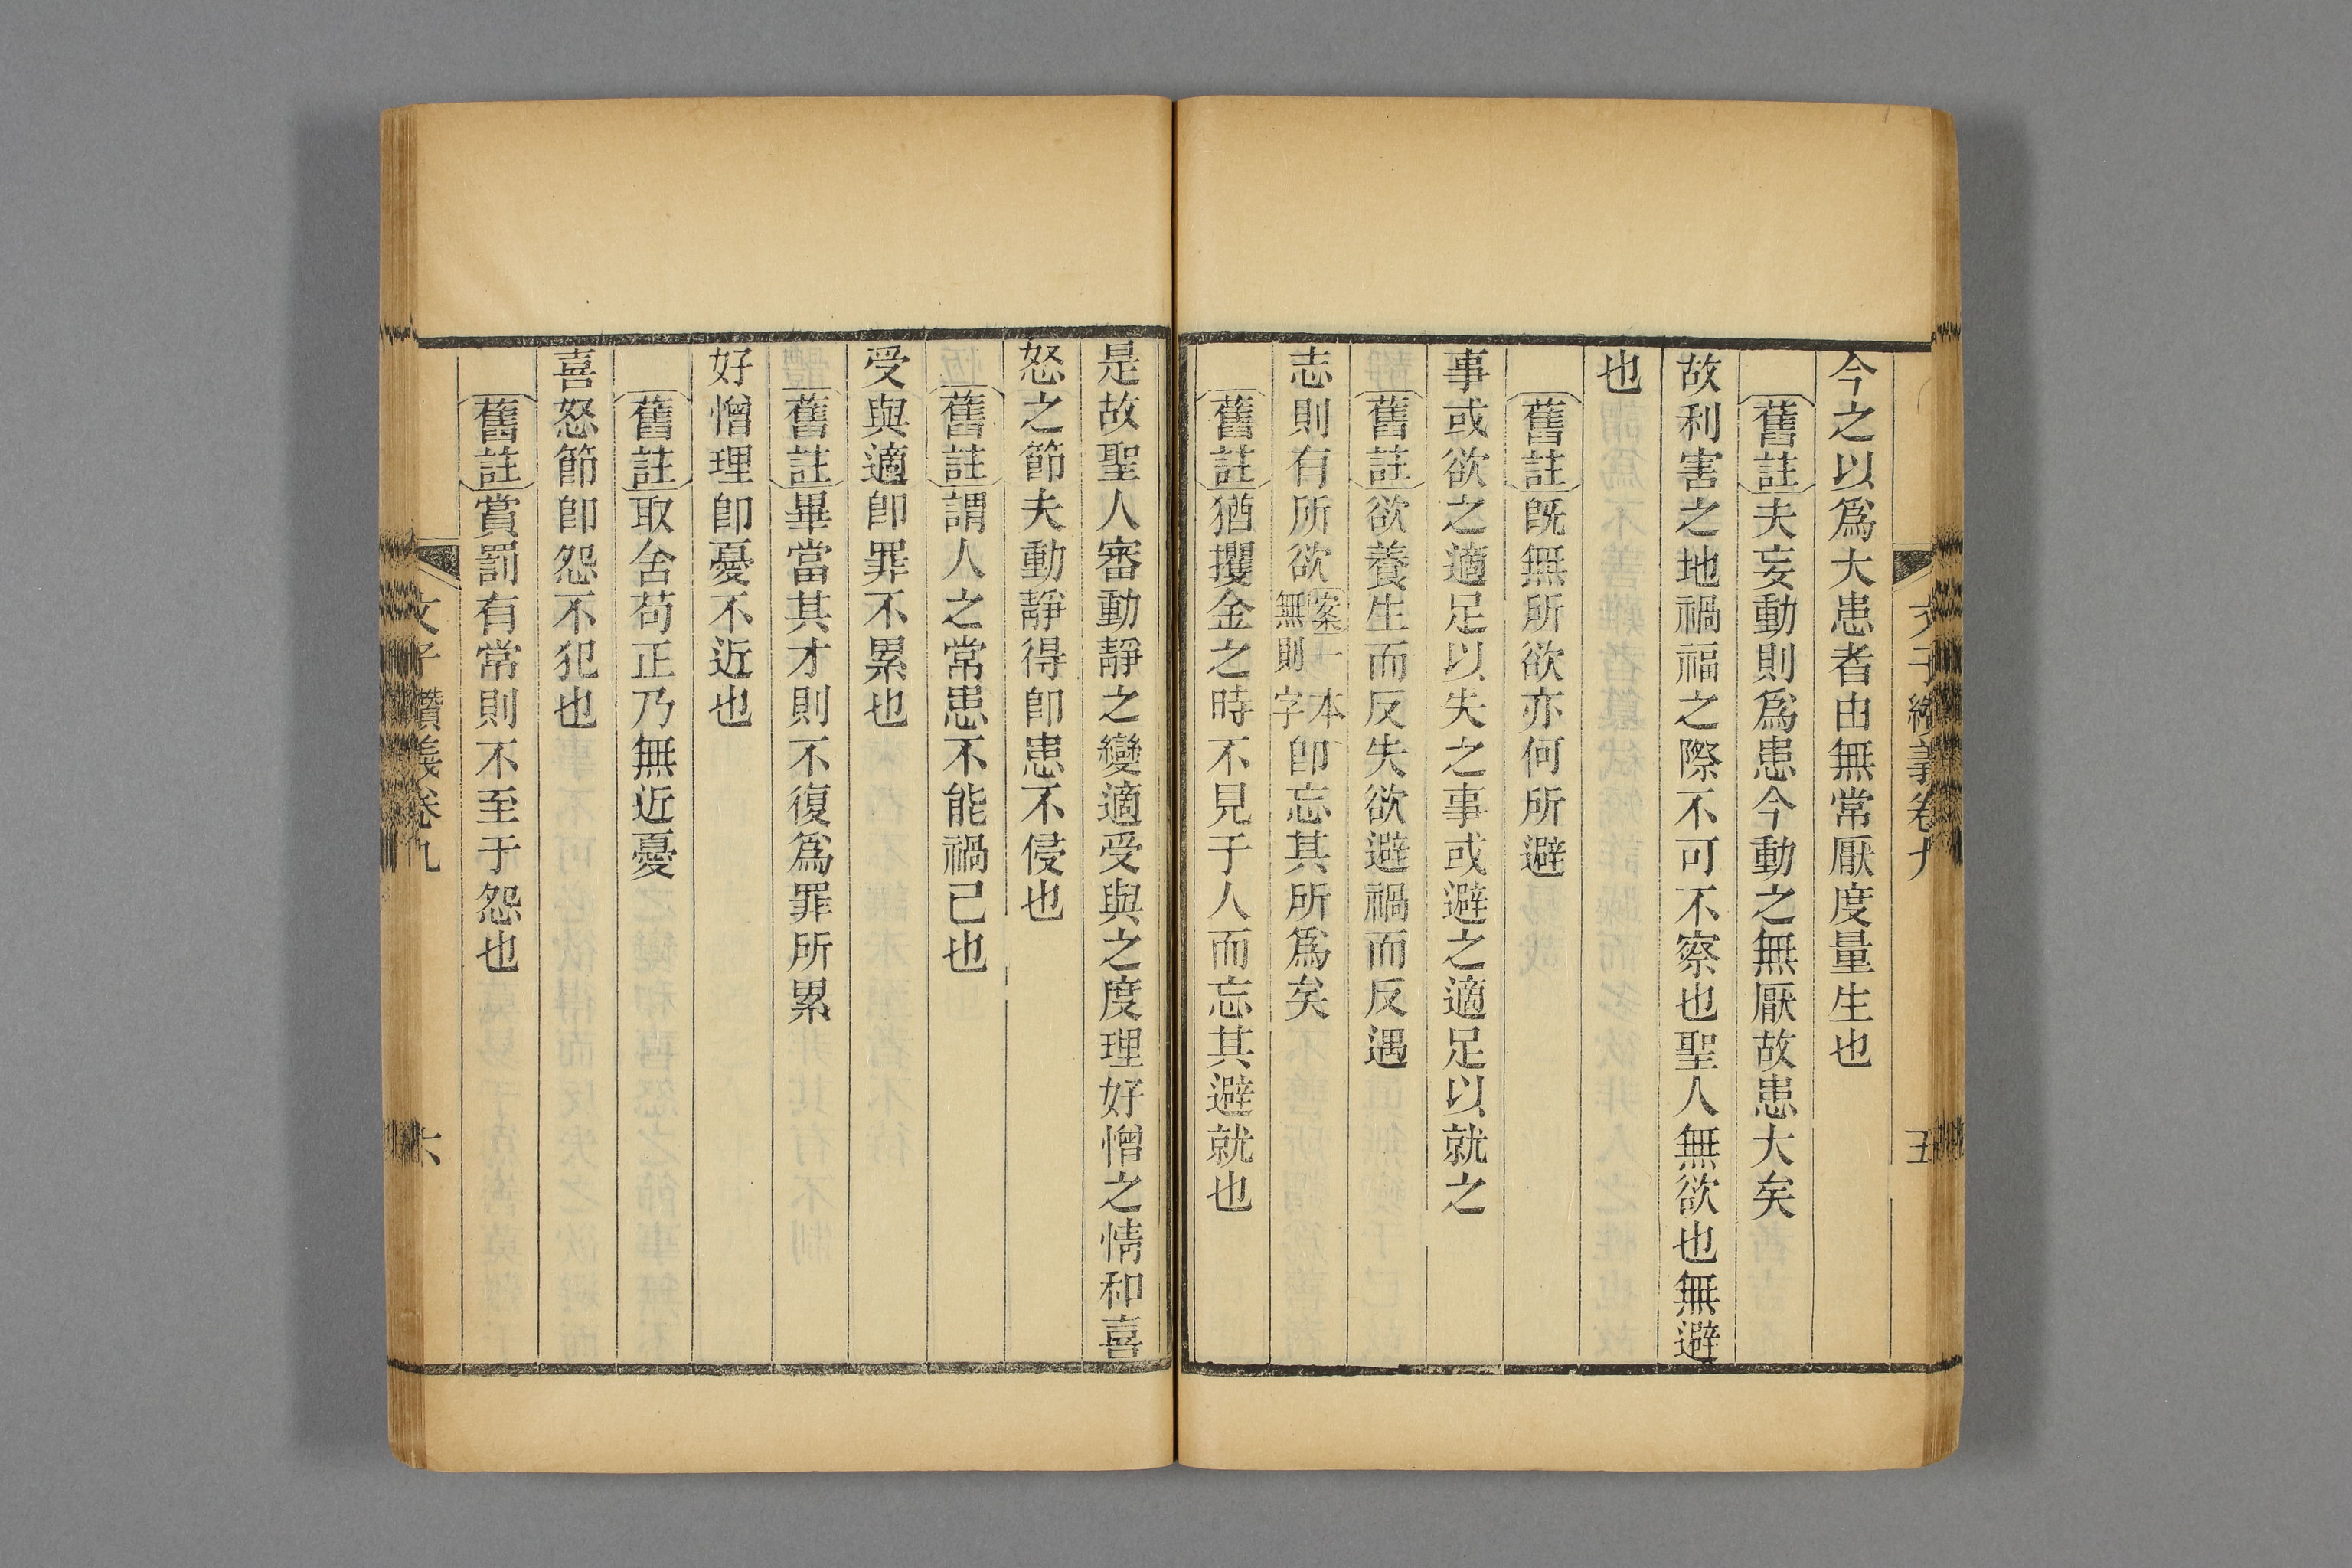 文子纘義卷九 五
今之以爲大患者由無常厭度量生也
舊註夫妄動則爲患今動之無厭故患大矣
故利害之地禍福之際不可不察也聖人無欲也無避
也
舊註旣無所欲亦何所避
事或欲之適足以失之事或避之適足以就之
舊註欲養生而反失欲避禍而反遇
志則有所欲案一本無則字卽忘其所爲矣
舊註猶攫金之時不見于人而忘其避就也
是故聖人審動靜之變適受與之度理好憎之情和喜
怒之節夫動靜得卽患不侵也
舊註謂人之常患不能禍己也
受與適卽罪不累也
舊註畢當其才則不復爲罪所累
好憎理卽憂不近也
舊註取舍苟正乃無近憂
喜怒節卽怨不犯也
舊註賞罰有常則不至于怨也
文子纘義卷九 六